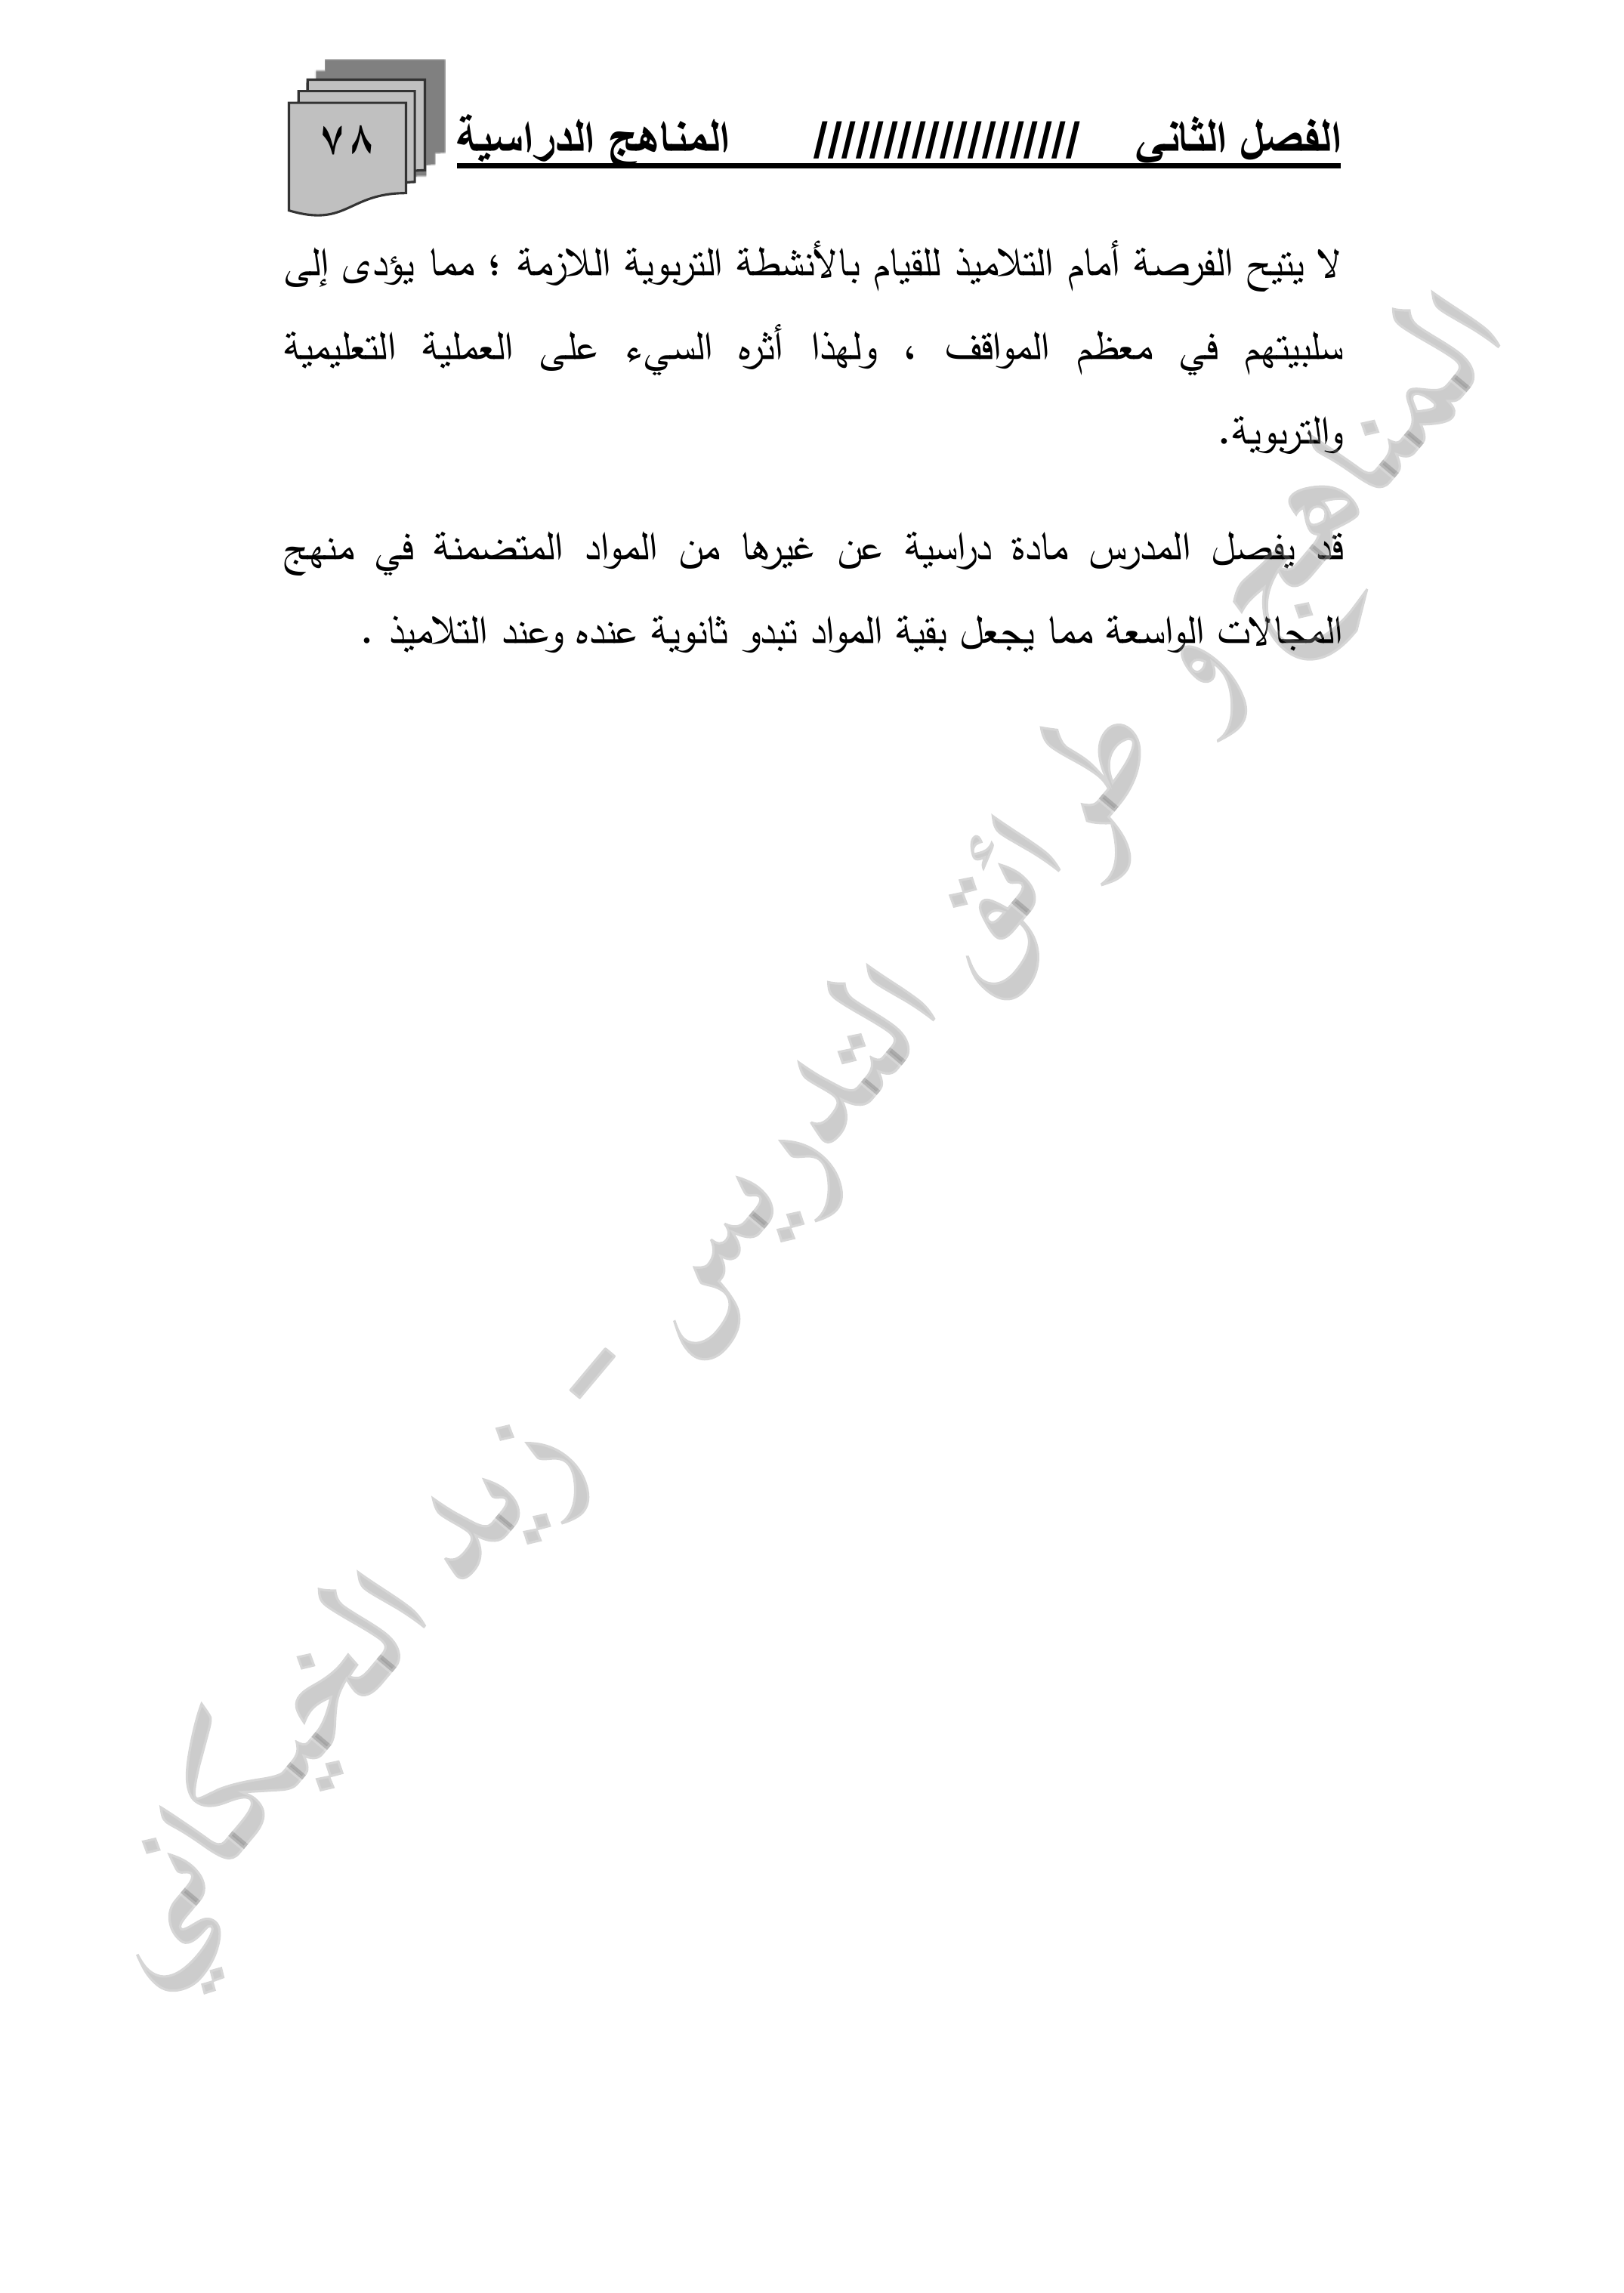 الفصل الثاني /////////////////// المناهج الدراسية ٧٨
لا يتيح الفرصة أمام التلاميذ للقيام بالأنشطة التربوية اللازمة ؛ مما يؤدى إلى
سلبيتهم في معظم المواقف ، ولهذا أثره السيء على العملية التعليمية
والتربوية.
قد يفصل المدرس مادة دراسية عن غيرها من المواد المتضمنة في منهج
المجالات الواسعة مما يجعل بقية المواد تبدو ثانوية عنده وعند التلاميذ .
المناهج و طرائق التدريس - زيد الخيكاني